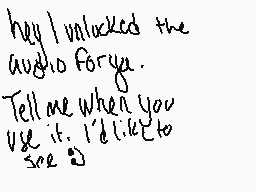 hey I unlocked the
audio for ya.
Tell me when you
use it. I'd like to
see :)